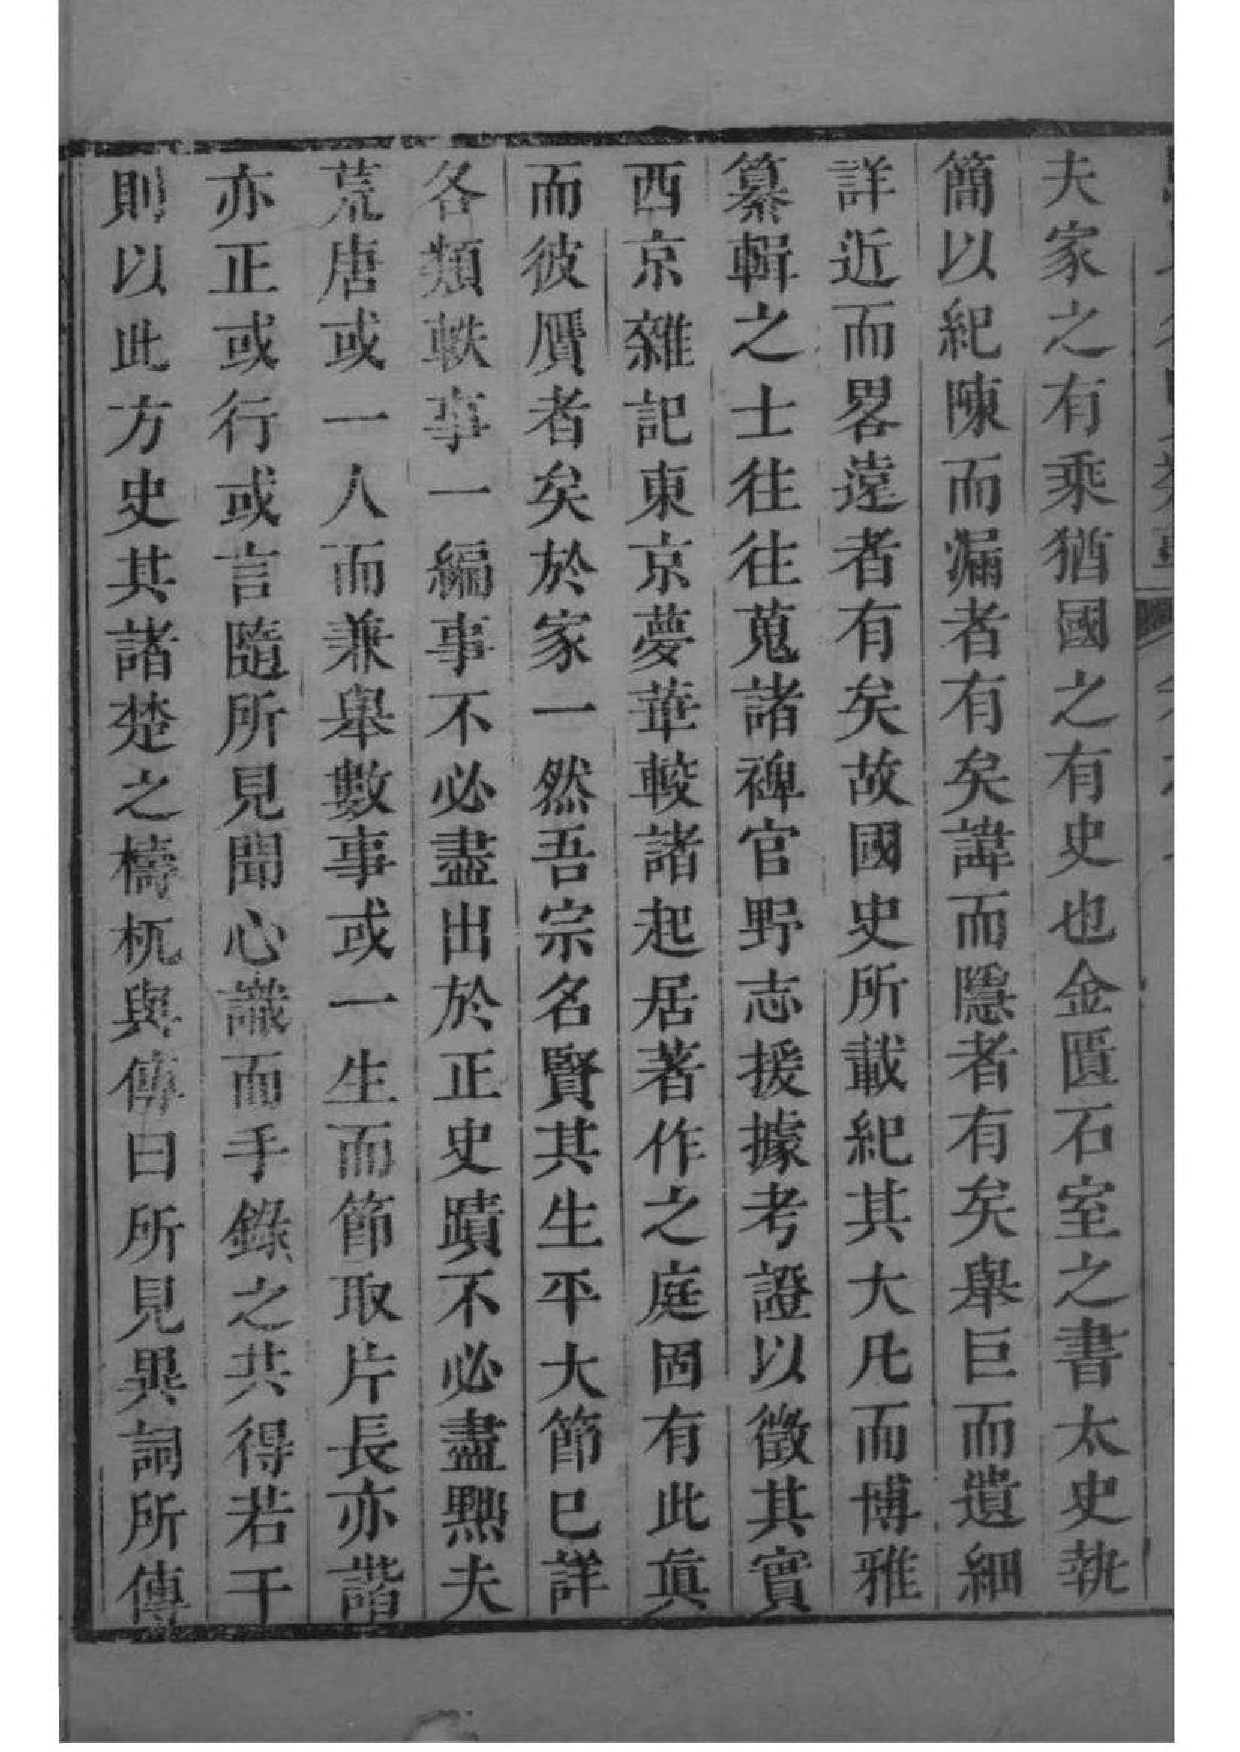 夫家之有乘猶國之有史也金匱石室之書太史執
簡以紀陳而漏者有矣諱而隱者有矣舉巨而遺細
詳近而畧遠者有矣故國史所載紀其大凡而博雅
纂輯之士往往蒐諸稗官野志援據考證以徵其實
西京雜記東京夢華較諸起居著作之庭固有此真
而彼贋者矣於家一然吾宗名賢其生平大節已詳
各類軼事一編事不必盡出於正史蹟不必盡㸃夫
荒唐或一人而兼舉數事或一生而節取片長亦諧
亦正或行或言隨所見聞心識而手錄之共得若干
則以此方史其諸楚之檮杌與傳曰所見異詞所傳